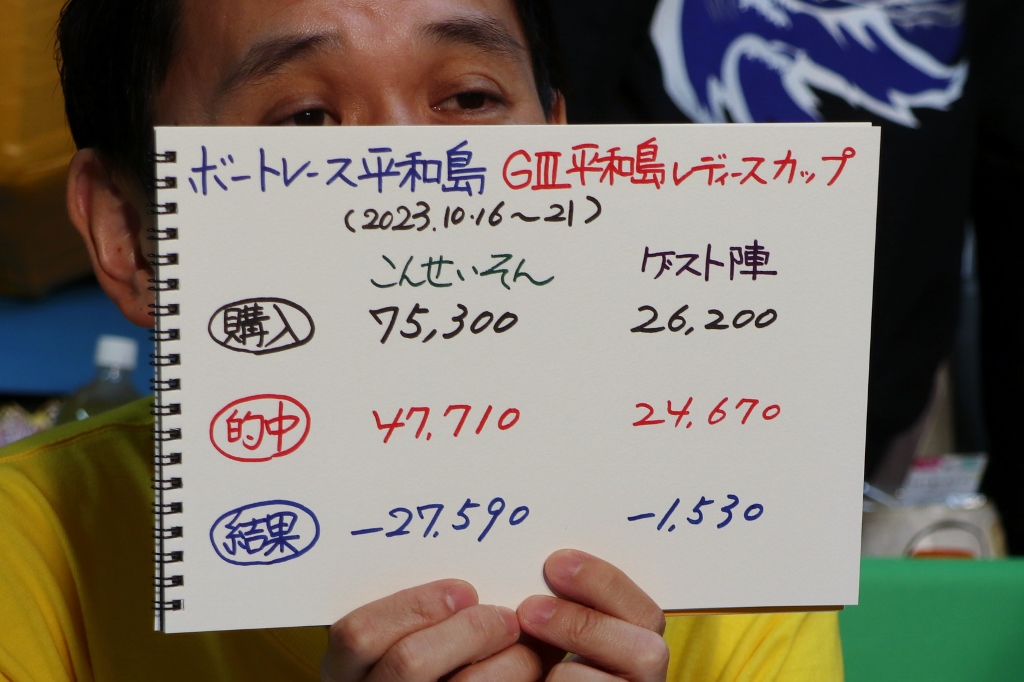 ボートレース平和島 GⅢ平和島レディースカップ
(2023.10.16〜21)
こんせいそん ゲスト陣
購入 75,300 26,200
的中 47,710 24,670
結果 -27,590 -1,530